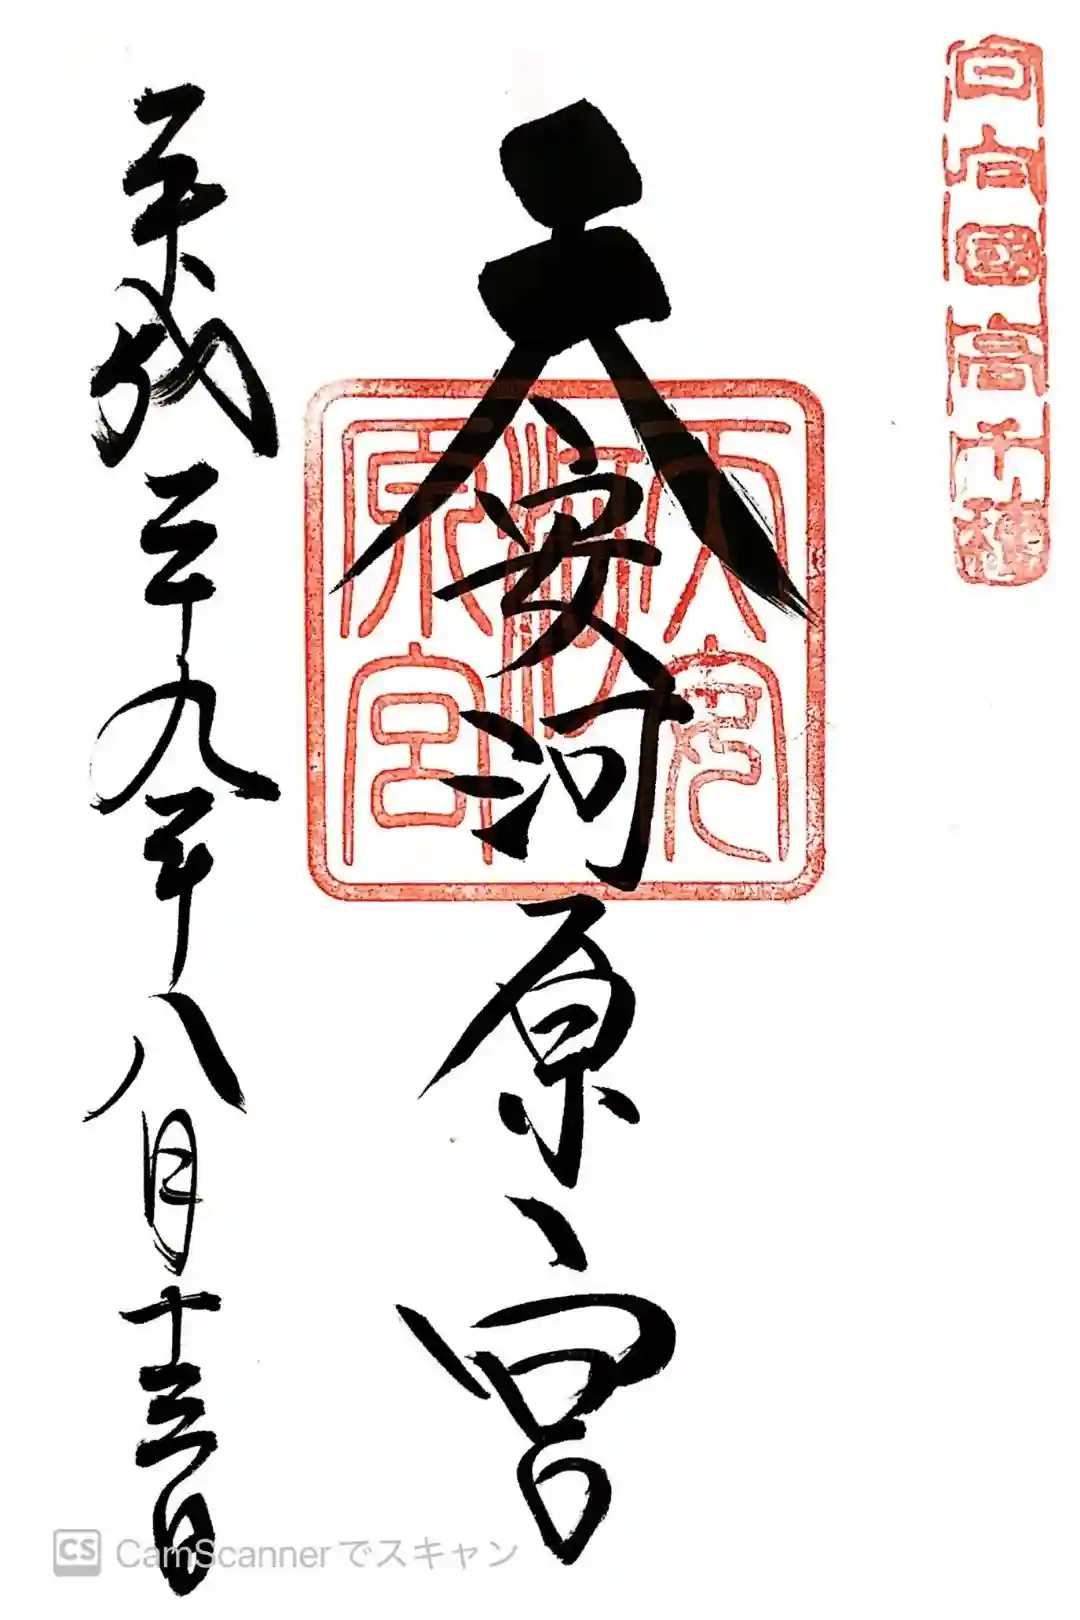 日向國高千穂
天安河原宮
天安
河
原宮
平成二十九年八月十三日
CS CamScannerでスキャン